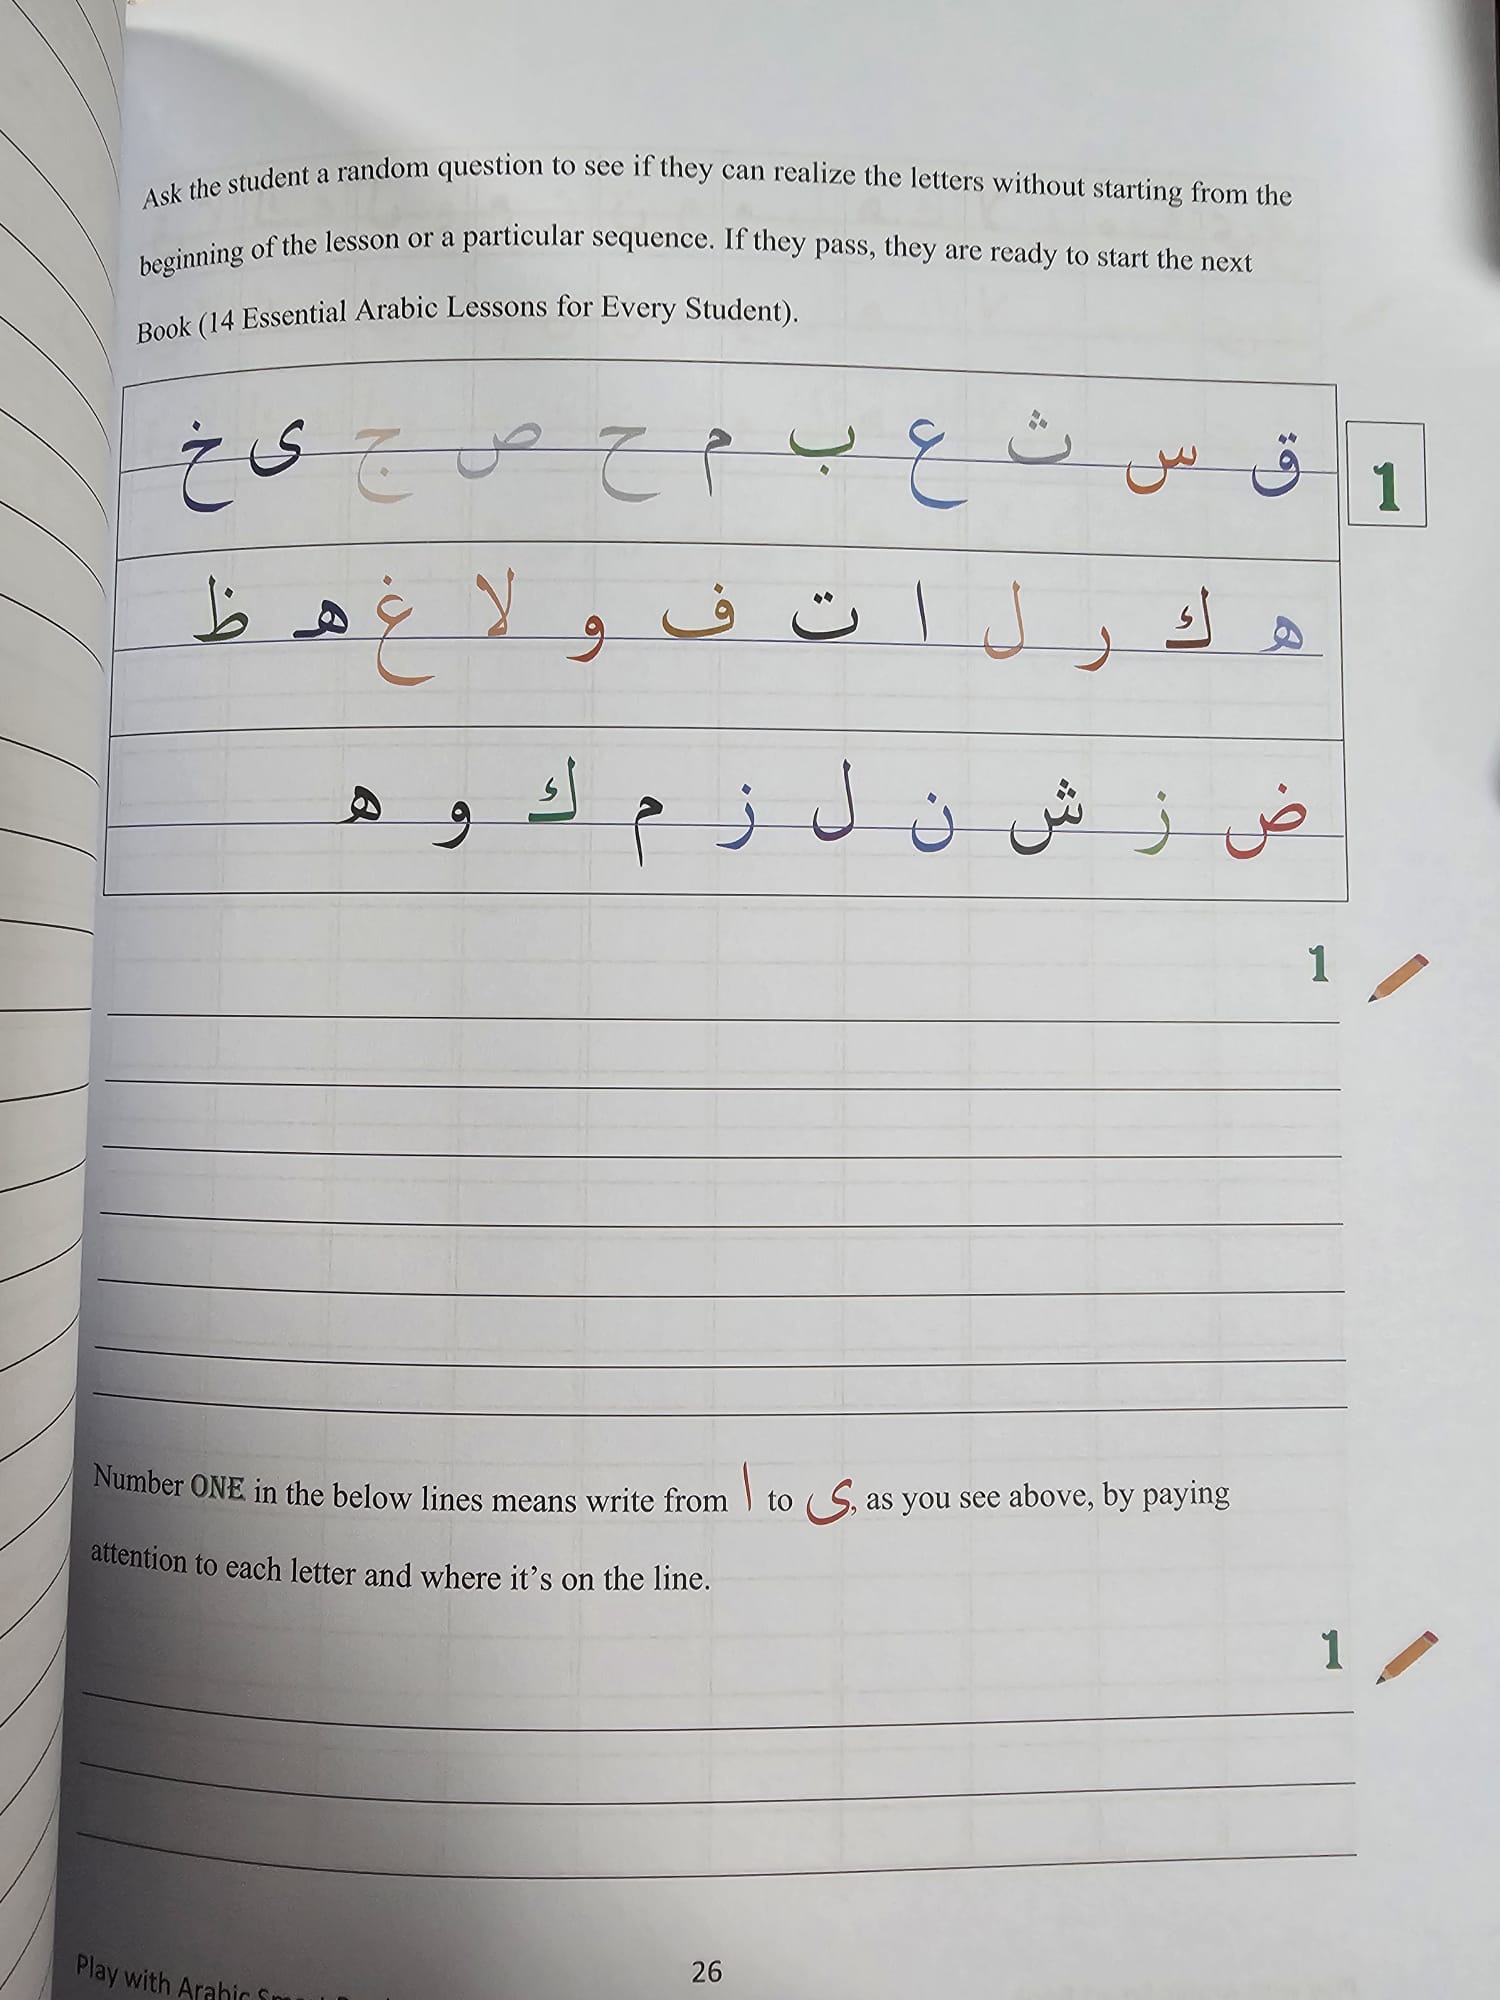 Ask the student a random question to see if they can realize the letters without starting from the
beginning of the lesson or a particular sequence. If they pass, they are ready to start the next
Book (14 Essential Arabic Lessons for Every Student).
ق س ث ع ب م ح ص ج ى خ
1
ه ك ر ل ا ت ف و لا غ هـ ظ
ض ز ش ن ل ز م ك و ه
1
Number ONE in the below lines means write from ا to ى, as you see above, by paying
attention to each letter and where it's on the line.
1
26
Play with Arabic